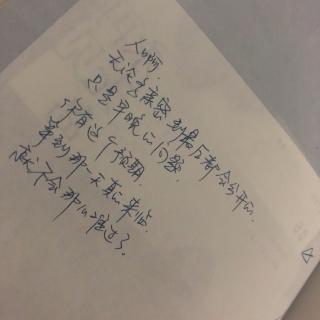 人啊.
无论多亲密 到最后都会分开的.
只是早晚的问题.
你有这个预期.
等到那一天真的来临.
就不会那么难过了.